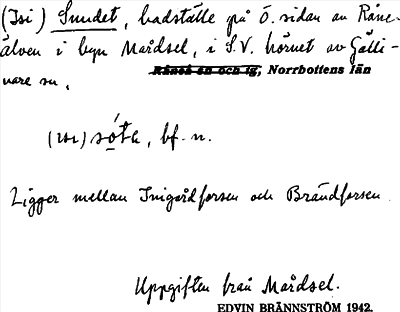 (Isi) Sundet, badställe på Ö. sidan av Råne-
älven i byn Mårdsel, i S.V. hörnet av Gälli-
vare sn.
Råneå sn och tg, Norrbottens län
bf. n.
Ligger mellan Inigårdforsen och Brändforsen.
Uppgiften från Mårdsel.
EDVIN BRÄNNSTRÖM 1942.